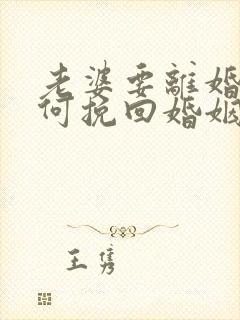 老婆要離婚
何挽回婚姻
王隽